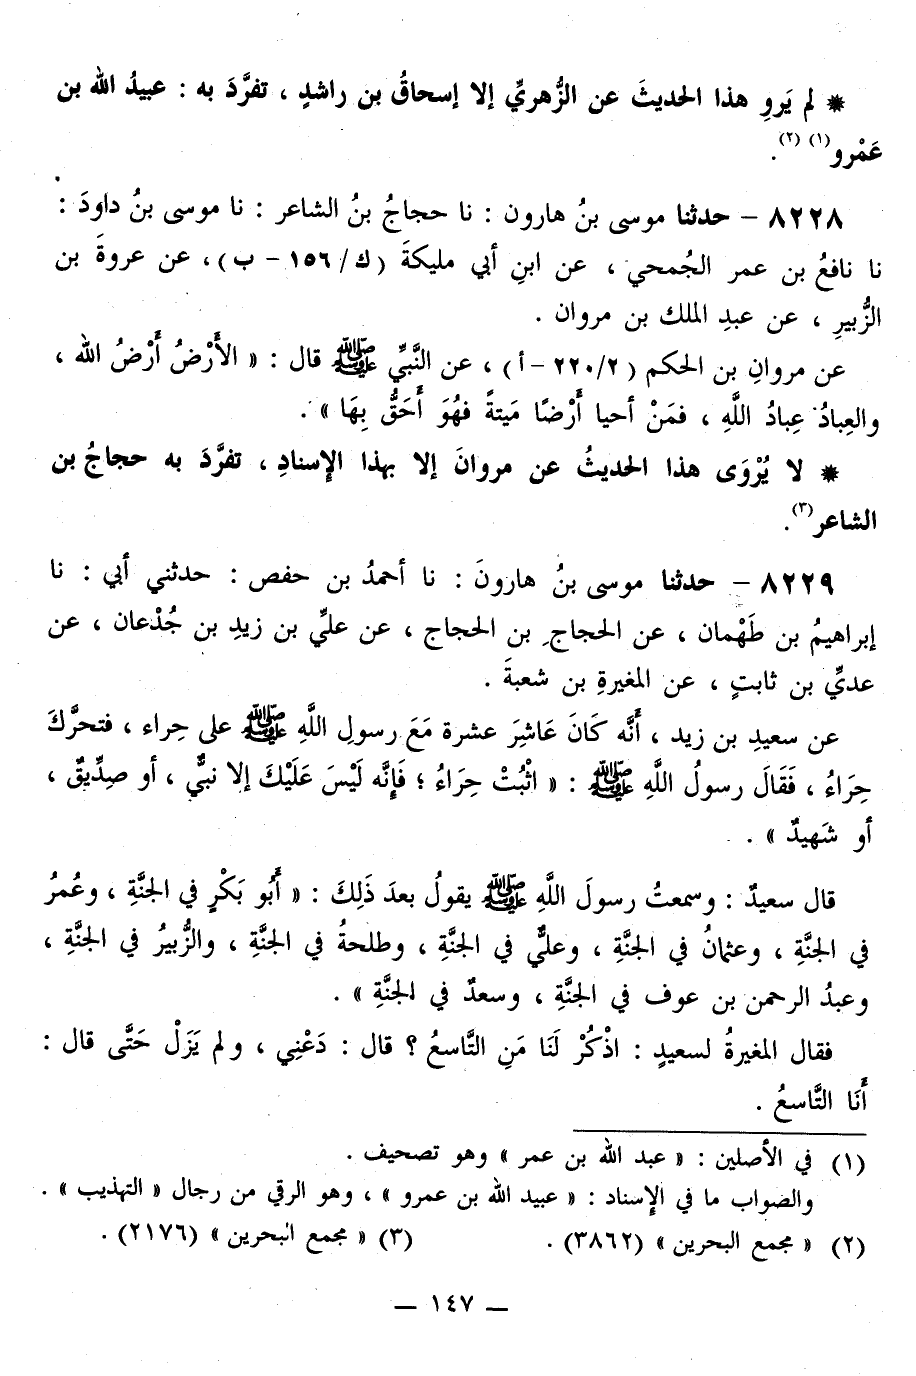 * لم يَروِ هذا الحديثَ عن الزُّهريِّ إلا إسحاقُ بن راشدٍ ، تفرَّدَ به : عبيدُ الله بن
عَمْرو(١) (٢).
٨٢٢٨ – حدثنا موسى بنُ هارون : نا حجاجُ بنُ الشاعر : نا موسى بنُ داودَ :
نا نافعُ بن عمر الجُمحي ، عن ابنِ أبي مليكةَ (ك/١٥٦ - ب) ، عن عروةَ بن
الزُّبيرِ ، عن عبدِ الملك بن مروان .
عن مروانِ بن الحكم (٢/ ٢٢٠ - أ) ، عن النَّبيِّ ﷺ قال : « الأَرْضُ أَرْضُ الله ،
والعِبادُ عِبادُ اللَّهِ ، فمَنْ أحيا أَرْضًا مَيتةً فهُوَ أَحَقُّ بِهَا » .
* لا يُرْوَى هذا الحديثُ عن مروانَ إلا بهذا الإسنادِ ، تفرَّدَ به حجاجُ بن
الشاعر(٣).
٨٢٢٩ – حدثنا موسى بنُ هارونَ : نا أحمدُ بن حفص : حدثني أبي : نا
إبراهيمُ بن طَهْمان ، عن الحجاجِ بن الحجاج ، عن عليِّ بن زيدِ بن جُدْعان ، عن
عديِّ بن ثابتٍ ، عن المغيرةِ بن شعبةَ .
عن سعيدِ بن زيد ، أَنَّه كَانَ عَاشِرَ عشرة مَعَ رسولِ اللَّهِ ﷺ على حِراء ، فتحرَّكَ
حِرَاءُ ، فَقَالَ رسولُ اللَّهِ ﷺ : « اثْبُتْ حِرَاءُ ؛ فَإِنَّه لَيْسَ عَلَيْكَ إلا نبيٌّ ، أو صِدِّيقٌ ،
أو شَهيدٌ » .
قال سعيدٌ : وسمعتُ رسولَ اللَّهِ ﷺ يقولُ بعدَ ذَلِكَ : « أَبُو بَكْرٍ في الجنَّةِ ، وعُمرُ
في الجنَّةِ ، وعثمانُ في الجنَّةِ ، وعليٌّ في الجنَّةِ ، وطلحةُ في الجنَّةِ ، والزُّبيرُ في الجنَّةِ ،
وعبدُ الرحمن بن عوف في الجنَّةِ ، وسعدٌ في الجنَّةِ » .
فقال المغيرةُ لسعيدٍ : اذْكُرْ لَنَا مَنِ التَّاسعُ ؟ قال : دَعْنِي ، ولم يَزَلْ حَتَّى قال :
أَنَا التَّاسعُ .
(١) في الأصلين : « عبد الله بن عمر » وهو تصحيف .
والصواب ما في الإسناد : « عبيد الله بن عمرو » ، وهو الرقي من رجال « التهذيب » .
(٢) « مجمع البحرين » (٣٨٦٢) . (٣) « مجمع البحرين » (٢١٧٦) .
— ١٤٧ —